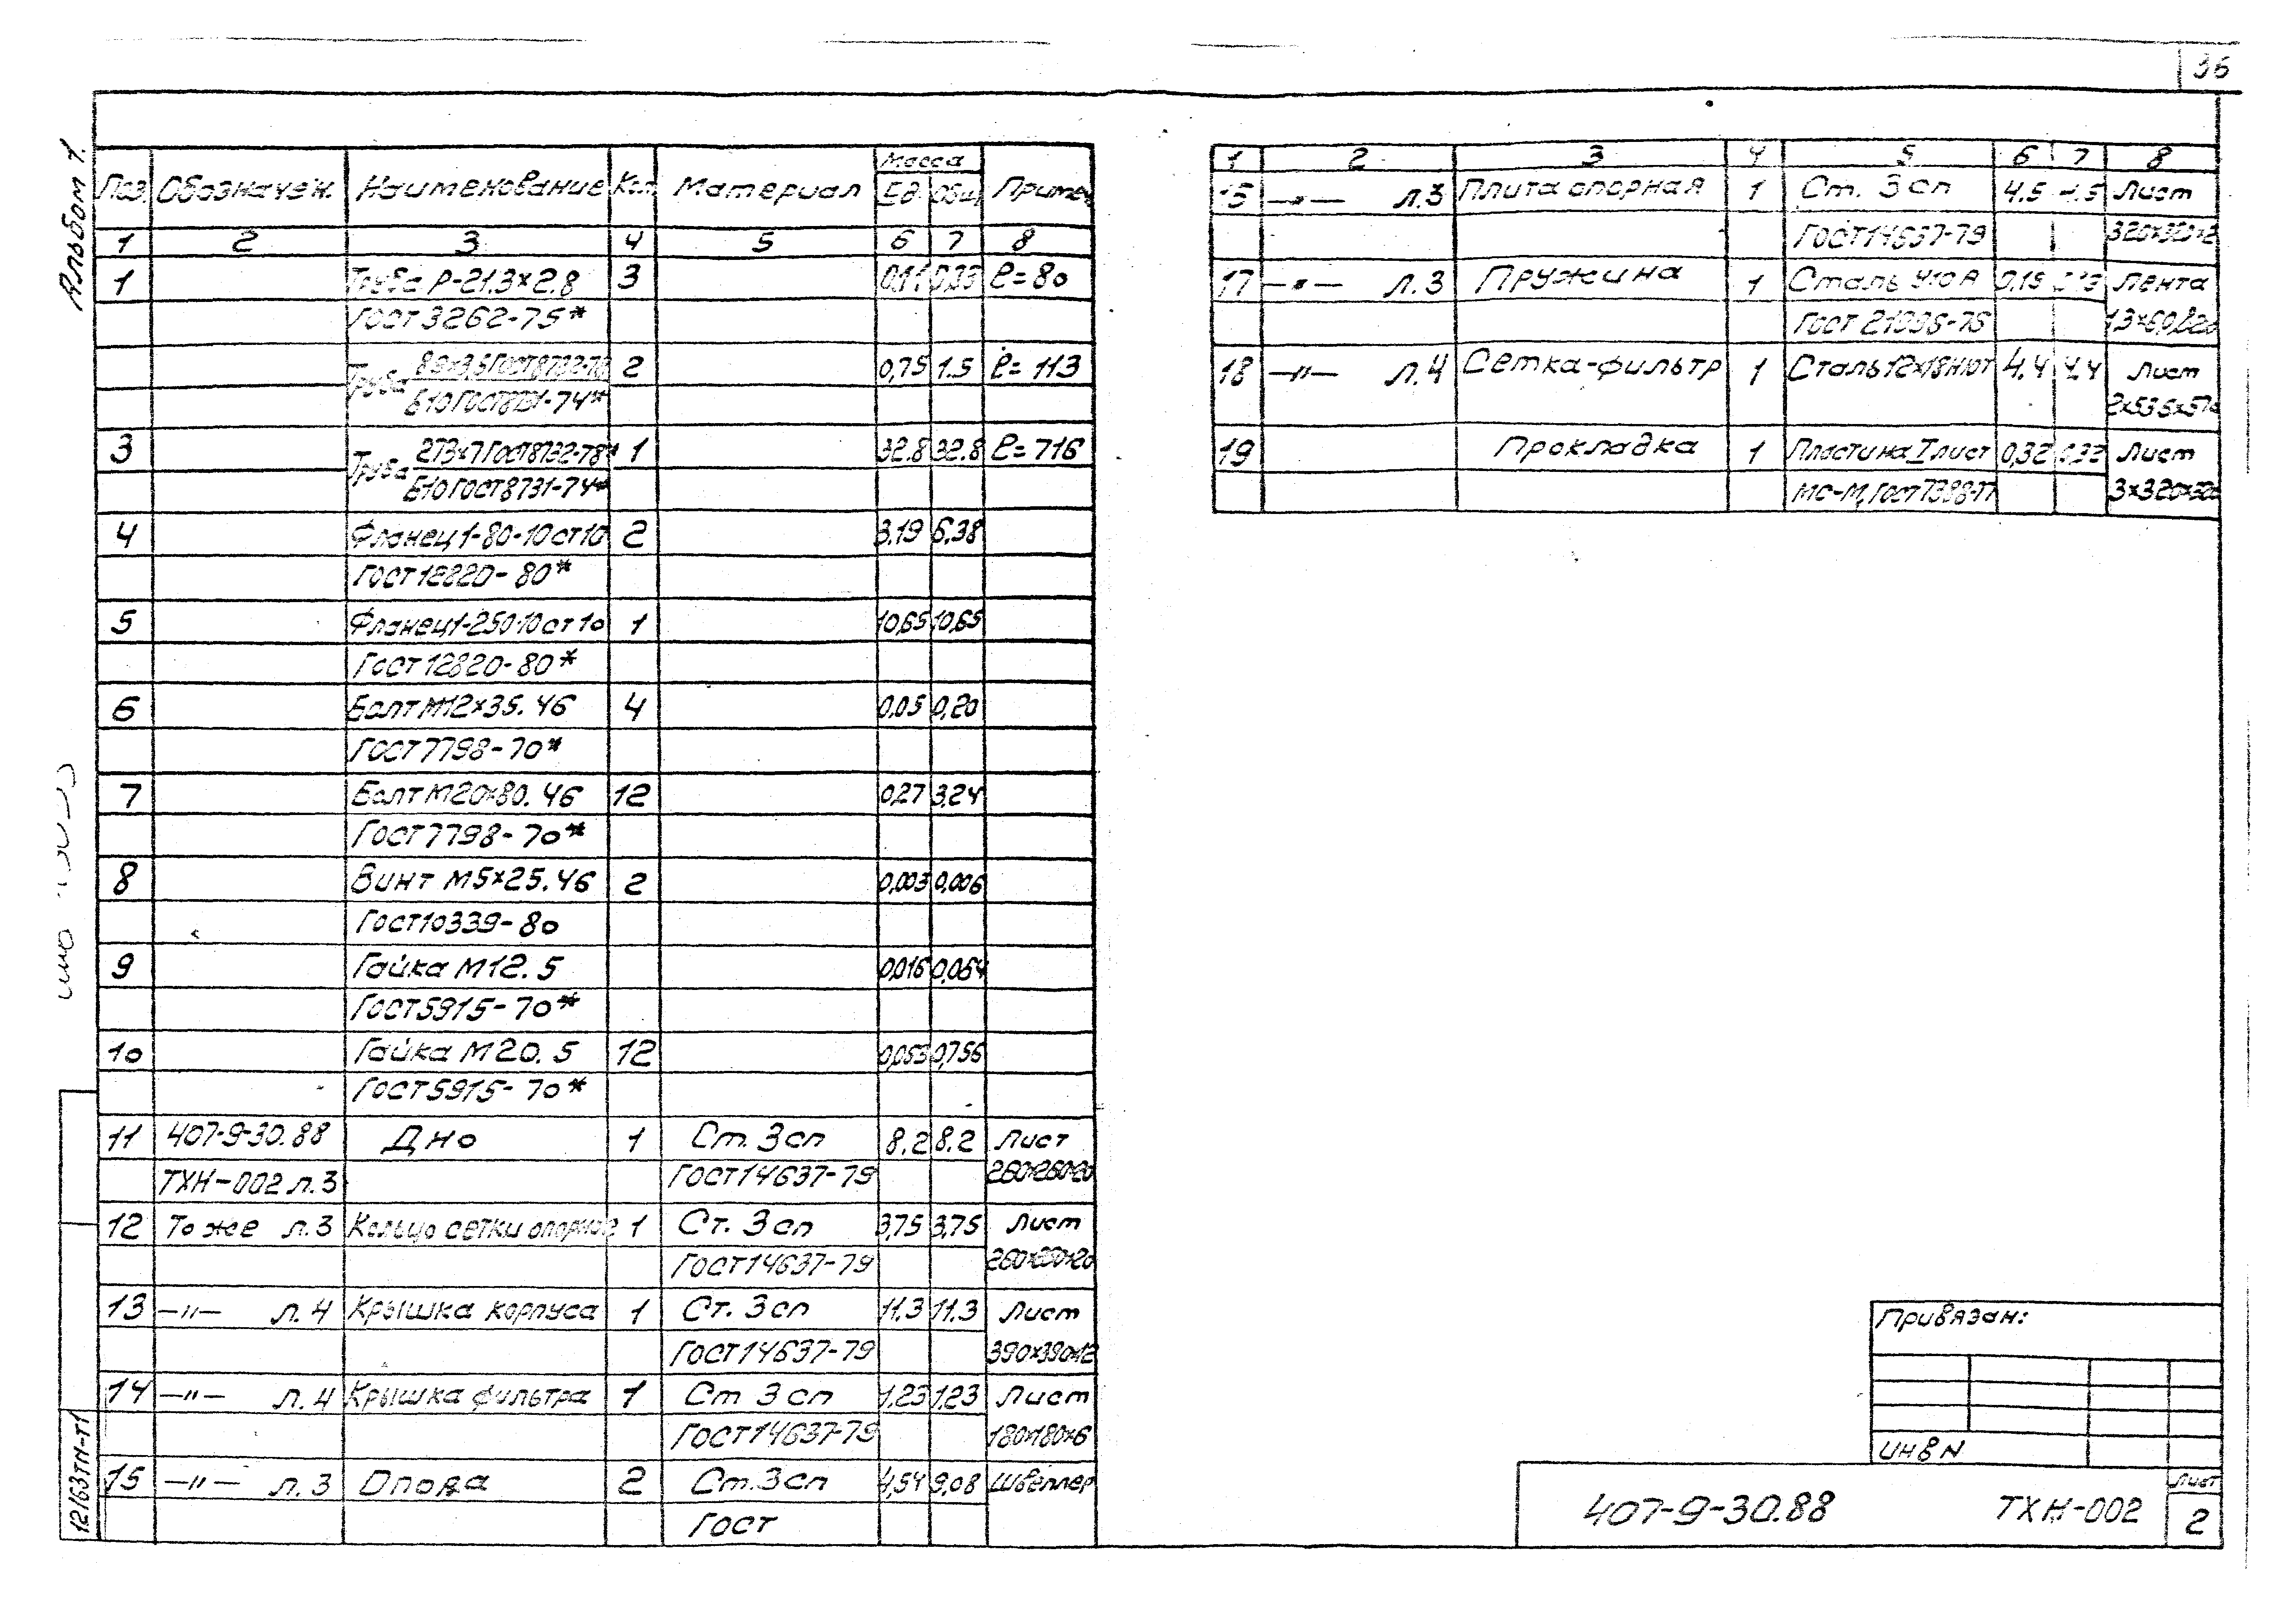 36
Альбом 1.
Поз. Обозначен. Наименование Кол. Материал Масса Ед. Общ. Примеч.
1 2 3 4 5 6 7 8
1 Труба Р-21.3×2.8 3 0,11 0,33 ℓ=80
ГОСТ 3262-75*
Труба 89×3,5 ГОСТ 8732-78 2 0,75 1.5 ℓ=113
Б10 ГОСТ 8731-74*
3 Труба 273×7 ГОСТ 8732-78* 1 32.8 32.8 ℓ=716
Б10 ГОСТ 8731-74*
4 Фланец 1-80-10 ст 10 2 3.19 6,38
ГОСТ 12820-80*
5 Фланец 1-250-10 ст 10 1 10,65 10,65
ГОСТ 12820-80*
6 Болт М12×35.46 4 0,05 0,20
ГОСТ 7798-70*
7 Болт М20×80.46 12 0,27 3,24
ГОСТ 7798-70*
8 Винт М5×25.46 2 0,003 0,006
ГОСТ 10339-80
9 Гайка М12.5 0,016 0,064
ГОСТ 5915-70*
10 Гайка М20.5 12 0,063 0,756
ГОСТ 5915-70*
11 407-9-30.88 Дно 1 Ст. 3сп 8.2 8.2 Лист
ТХН-002 л.3 ГОСТ 14637-79 260×260×20
12 То же л.3 Кольцо сетки опорное 1 Ст. 3сп 3,75 3,75 Лист
ГОСТ 14637-79
13 —"— л.4 Крышка корпуса 1 Ст. 3сп 11.3 11.3 Лист
ГОСТ 14637-79 390×390×12
14 —"— л.4 Крышка фильтра 1 Ст 3сп 1,23 1,23 Лист
ГОСТ 14637-79 180×180×6
15 —"— л.3 Опора 2 Ст. 3сп 4,54 9,08 Швеллер
ГОСТ
1 2 3 4 5 6 7 8
—"— л.3 Плита опорная 1 Ст. 3сп 4.5 4.5 Лист
ГОСТ 14637-79
17 —"— л.3 Пружина 1 Сталь У10А 0,19 Лента
18 —"— л.4 Сетка-фильтр 1 Сталь 12×18Н10Т 4.4 4.4 Лист
19 Прокладка 1 Пластина I лист 0,32 0,32 Лист
МС-М, ГОСТ 7338-77
Привязан:
инв N
407-9-30.88 ТХН-002 Лист 2
12163ТМ-Т1